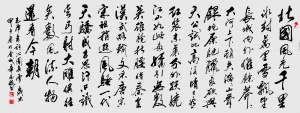 北國風光千里
冰封萬里雪飄望
長城內外惟餘莽莽
大河上下頓失滔滔山舞
銀蛇原馳蠟象欲與天公
試比高須晴日看
紅裝素裹分外妖嬈
江山如此多嬌引無數
英雄競折腰惜秦皇
漢武略輸文采唐宗
宋祖稍遜風騷一代
天驕成吉思汗只識
彎弓射大雕俱往
矣數風流人物
還看今朝